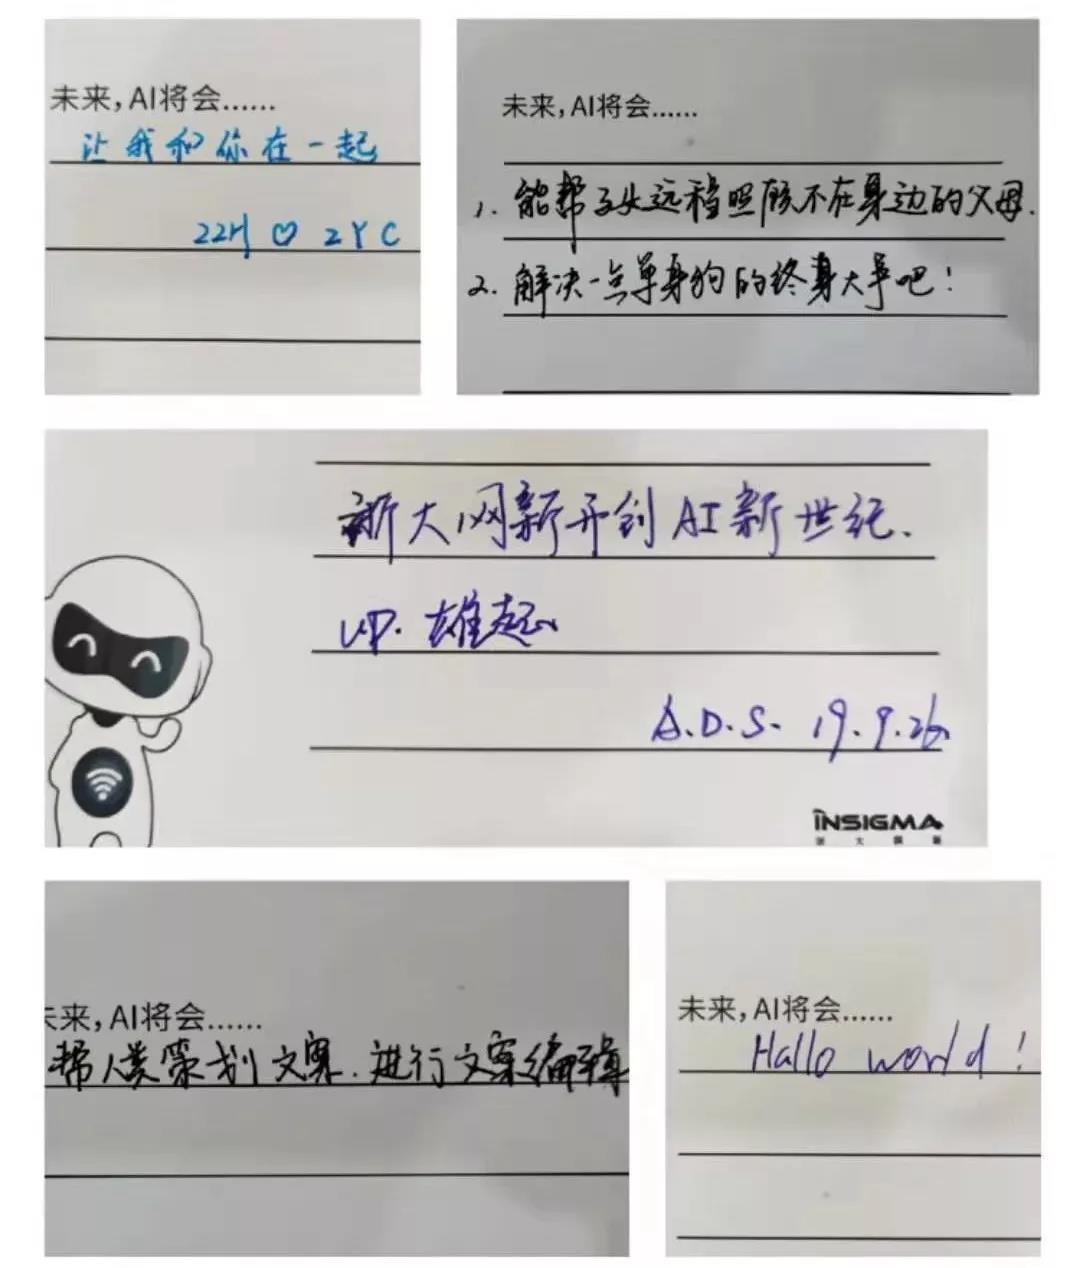 未来,AI将会......
让我和你在一起
22H ♡ 2YC
未来,AI将会......
1. 能帮子女远程照顾不在身边的父母.
2. 解决一点单身狗的终身大事吧!
浙大网新开创AI新世纪.
UP. 雄起
A.D.S. 19.9.26
INSIGMA
浙大网新
未来,AI将会......
帮人类策划文案.进行文案编辑
未来,AI将会......
Hallo world!